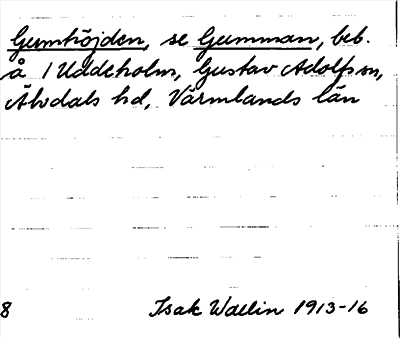 Gumhöjden, se Gumman, beb.
å 1 Uddeholm, Gustav Adolfs sn,
Älvdals hd, Värmlands län
8 Isak Wallin 1913-16